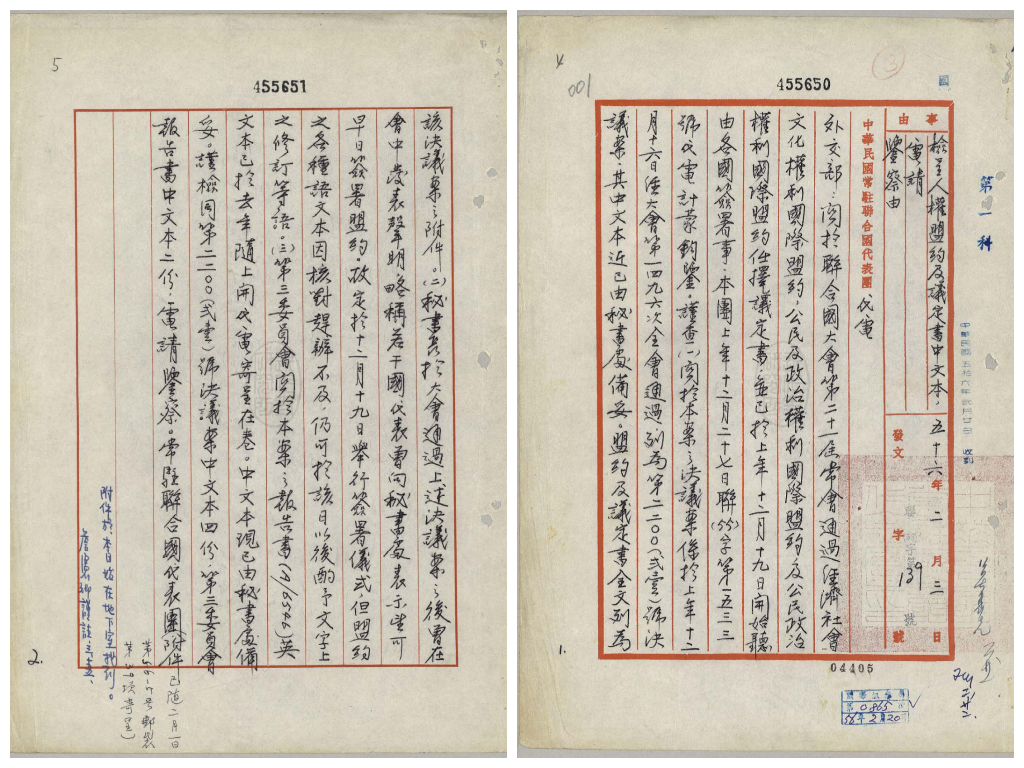 455650
4
001
第一科
事由
檢呈人權盟約及議定書中文本，
電請
鑒察由
五十六年二月三日
發文
字
139
號
中華民國常駐聯合國代表團代電
外交部：關於聯合國大會第二十一屆常會通過經濟社會
文化權利國際盟約，公民及政治權利國際盟約及公民政治
權利國際盟約任擇議定書，並已於上年十二月十九日開始聽
由各國簽署事，本團上年十二月二十七日聯(55)字第一五三三
號代電計蒙鈞鑒。謹查(一)關於本案之決議案係於上年十二
月十六日經大會第一四九六次全會通過，列為第二二００(弍壹)號決
議案，其中文本近已由秘書處備妥。盟約及議定書全文列為
1.
04405
第0865
56年2月20
455651
5
該決議案之附件。(二)秘書長於大會通過上述決議案之後曾在
會中發表聲明略稱若干國代表曾向秘書處表示望可
早日簽署盟約。故定於十二月十九日舉行簽署儀式但盟約
之各種語文本因核對趕辦不及，仍可於該日以後酌予文字上
之修訂等語。(三)第三委員會關於本案之報告書(A/6546)英
文本已於去年隨上開代電寄呈在卷。中文本現已由秘書處備
妥。謹檢同第二二００(弍壹)號決議案中文本四份，第三委員會
報告書中文本二份，電請鑒察。常駐聯合國代表團(附件
已隨二月一日
郵袋
寄呈)
附件於本日始在地下室找到。
2.